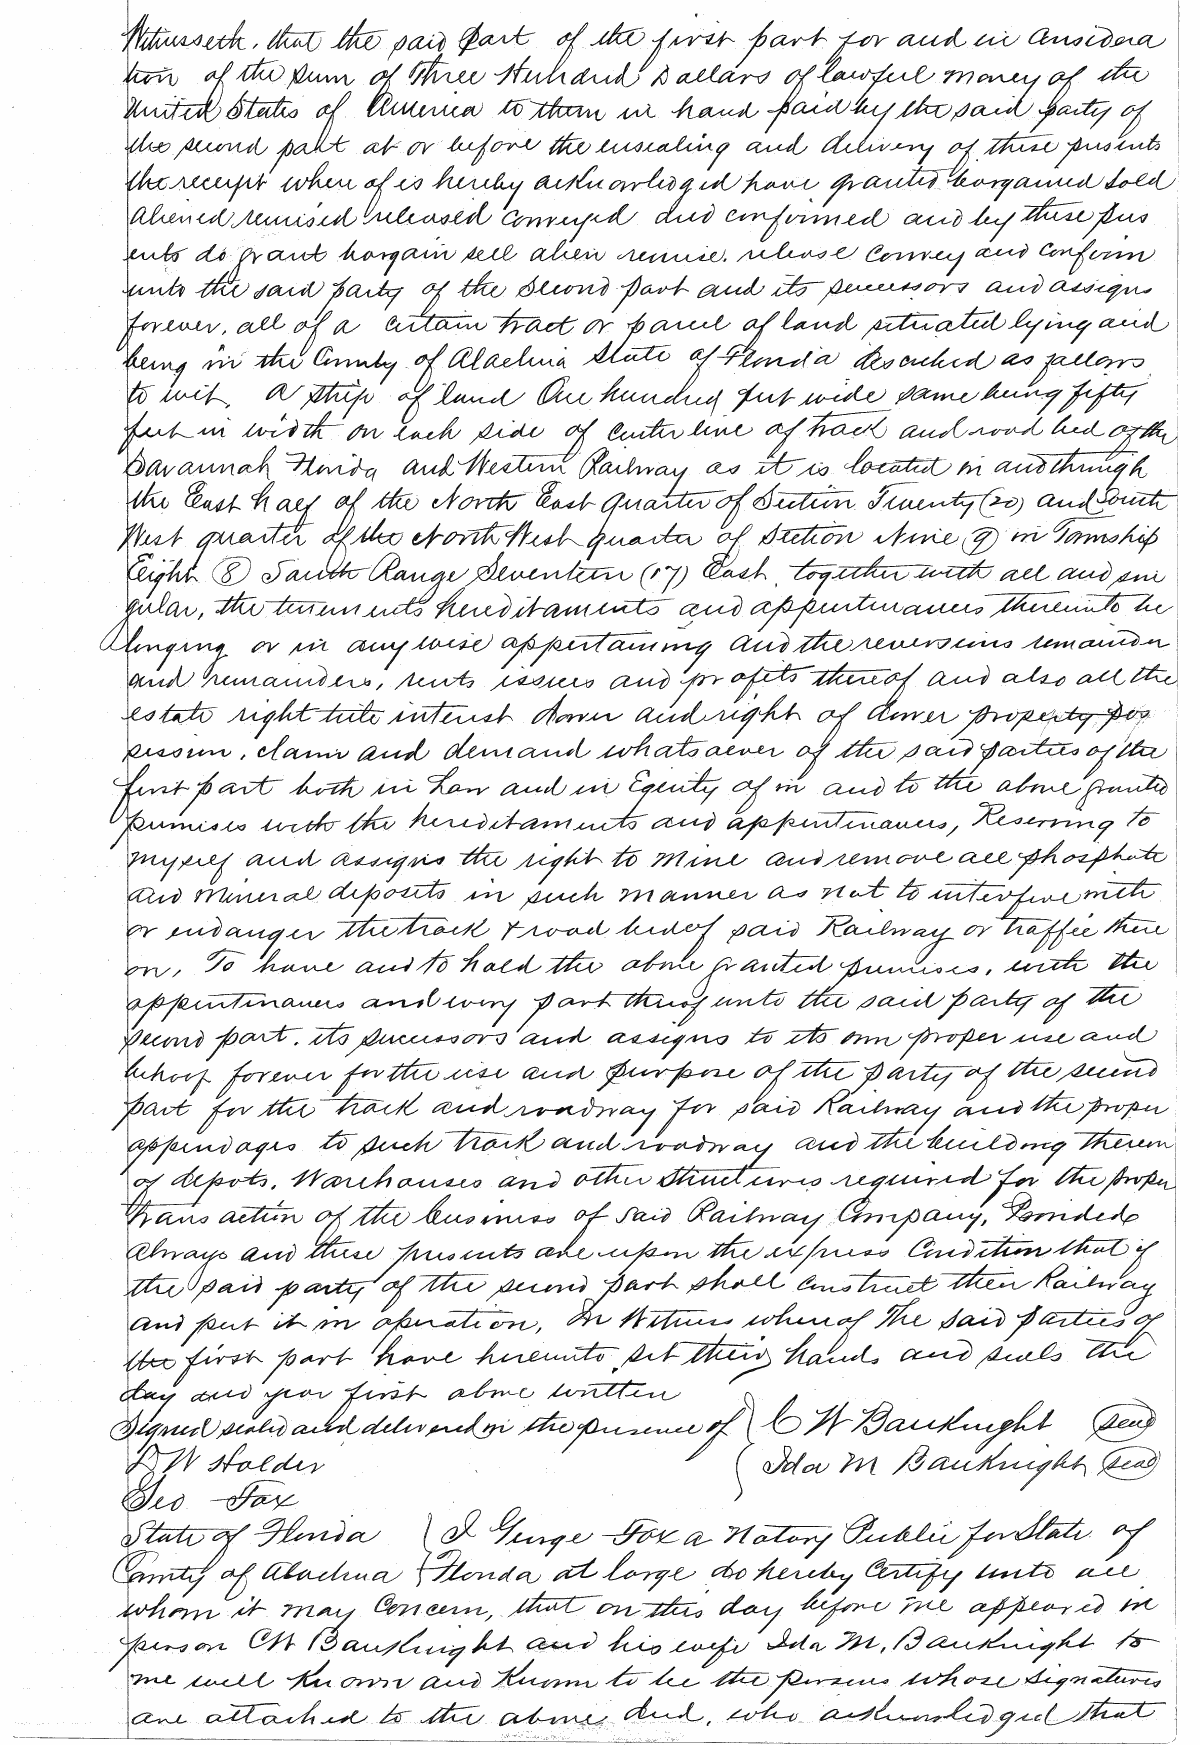 Witnesseth, that the said part of the first part for and in considera
tion of the sum of Three Hundred Dollars of lawful money of the
United States of America to them in hand paid by the said party of
the second part at or before the ensealing and delivery of these presents
the receipt where of is hereby acknowledged have granted bargained sold
aliened remised released conveyed and confirmed and by these pres
ents do grant bargain sell alien remise, release convey and confirm
unto the said party of the second part and its successors and assigns
forever, all of a certain tract or parcel of land situated lying and
being in the County of Alachua State of Florida described as follows
to wit, A strip of land One hundred feet wide same being fifty
feet in width on each side of center line of track and road bed of the
Savannah Florida and Western Railway as it is located in and through
the East half of the North East quarter of Section Twenty (20) and South
West quarter of the North West quarter of Section Nine (9) in Township
Eight (8) South Range Seventeen (17) East, together with all and sin
gular, the tenements hereditaments and appurtenances thereunto be
longing or in any wise appertaining and the reversions remainder
and remainders, rents issues and profits thereof and also all the
estate right title interest dower and right of dower property pos
session, claim and demand whatsoever of the said parties of the
first part both in Law and in Equity of in and to the above granted
premises with the hereditaments and appurtenances, Reserving to
myself and assigns the right to mine and remove all phosphate
and mineral deposits in such manner as not to interfere with
or endanger the track & road bed of said Railway or traffic there
on, To have and to hold the above granted premises, with the
appurtenances and every part therof unto the said party of the
second part, its successors and assigns to its own proper use and
behoof forever for the use and purpose of the party of the second
part for the track and roadway for said Railway and the proper
appendages to such track and roadway and the building thereon
of depots, Warehouses and other structures required for the proper
transaction of the business of said Railway Company, Provided
always and these presents are upon the express Condition that if
the said party of the second part shall construct their Railway
and put it in operation, In Witness whereof The said parties of
the first part have hereunto set their hands and seals the
day and year first above written
Signed sealed and delivered in the presence of C W Bauknight (seal)
D W Holder Ida M Bauknight (seal)
Geo Fox
State of Florida I George Fox a Notary Public for State of
County of Alachua Florida at large do hereby Certify unto all
whom it may Concern, that on this day before me appeared in
person CW Bauknight and his wife Ida M. Bauknight to
me well known and known to be the persons whose signatures
are attached to the above deed, who acknowledged that